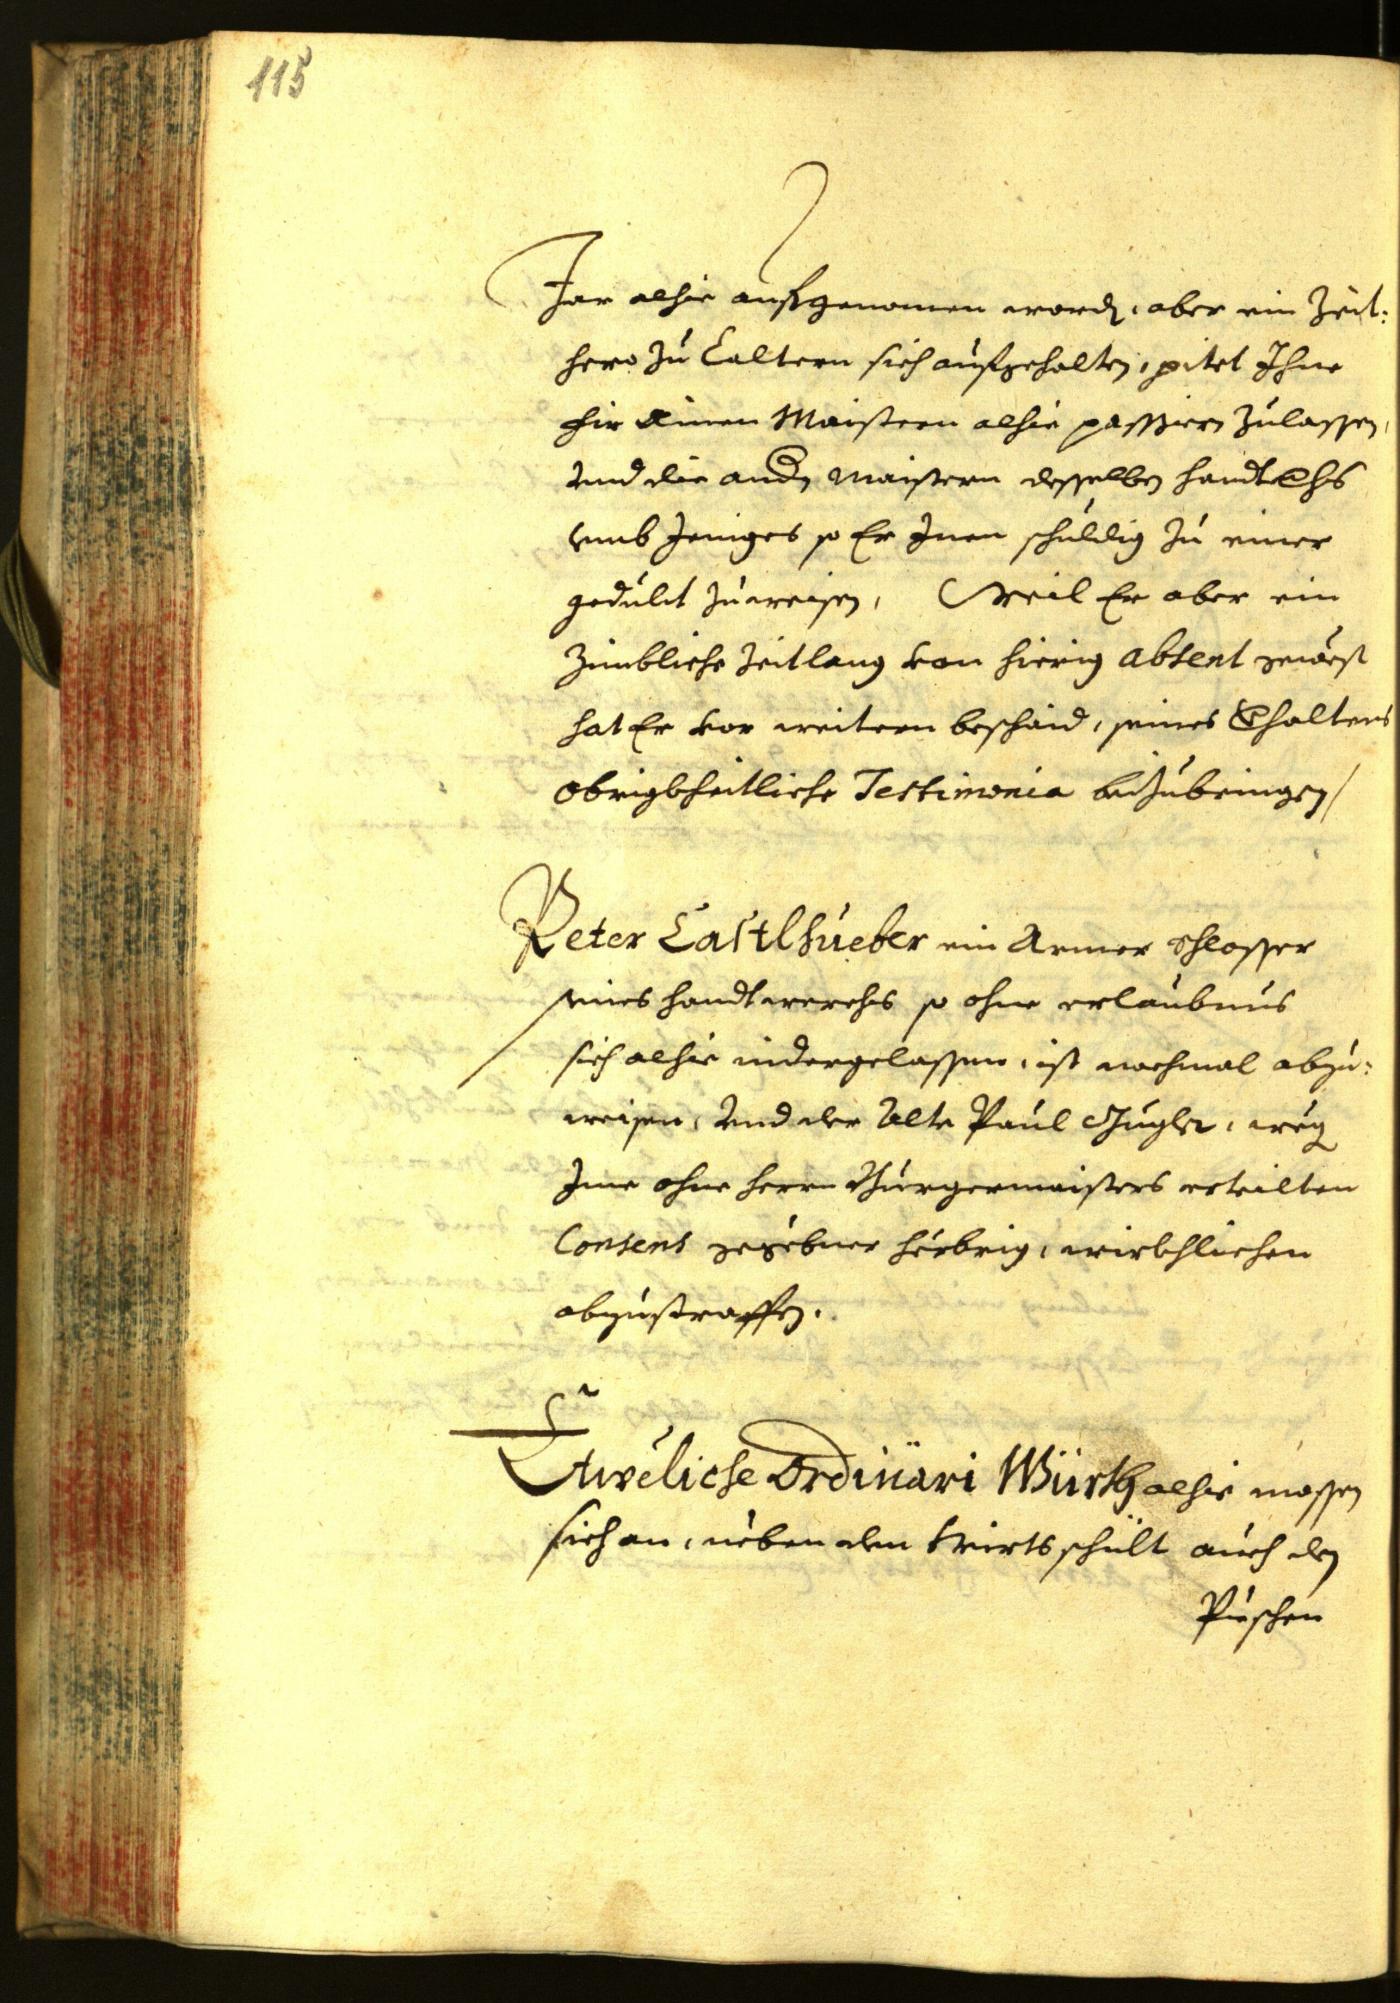 115
Jar alhie aufgenomen word, aber ein Zeit-
hero zu Caltern sich aufgehalten, pitet Ihne
fir einen Maistern alhie passiern zulassen,
und die andn Maistern desselben handtwchs
umb Jeniges so Er Inen schuldig zu einer
gedult zuweisen, Weil Er aber ein
Zimbliche Zeitlang von hierig absent gewest
hat Er vor weitern beschaid, seines Verhaltens
obrigkheitliche Testimonia beizubringen /
Peter Castlhueber ein Armer Schlosser
seines handtwerchs so ohne erlaubnus
sich alhie nidergelassen, ist nochmal abzu-
weisen, und der Alte Paul, weg
Ime ohne herrn Burgermaisters erteilten
Consens gegebner herbrig, wirkhlichen
abzustraffen.
Etweliche Ordinari Würth alhie massen
sich an, neben dem Wirtsschilt auch den
Puschen